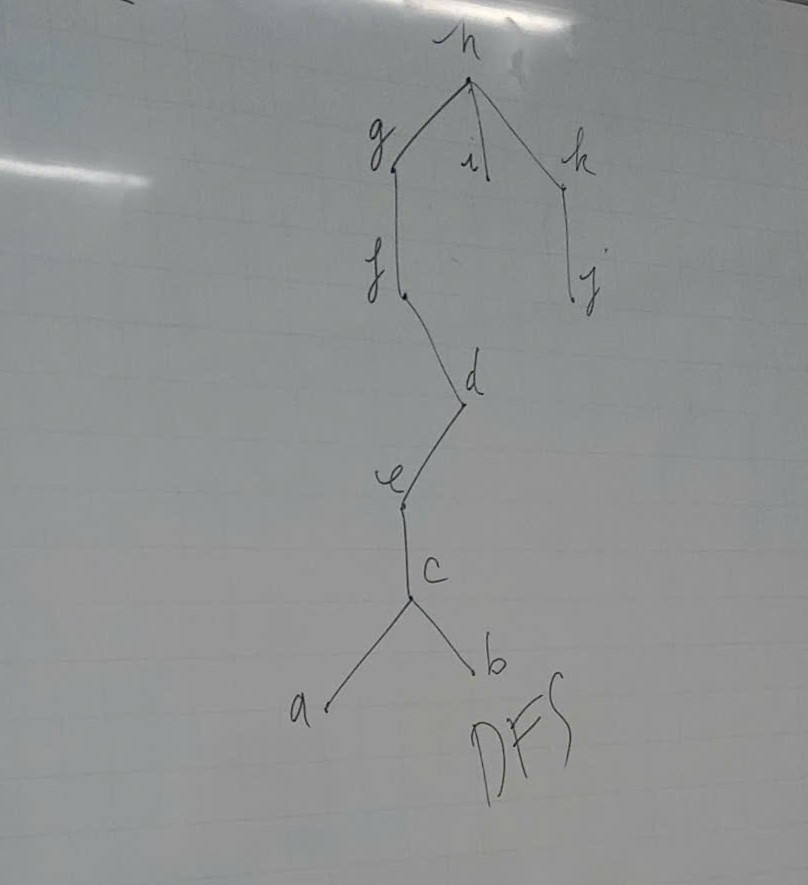 h
g i k
f j
d
e
c
a b
DFS